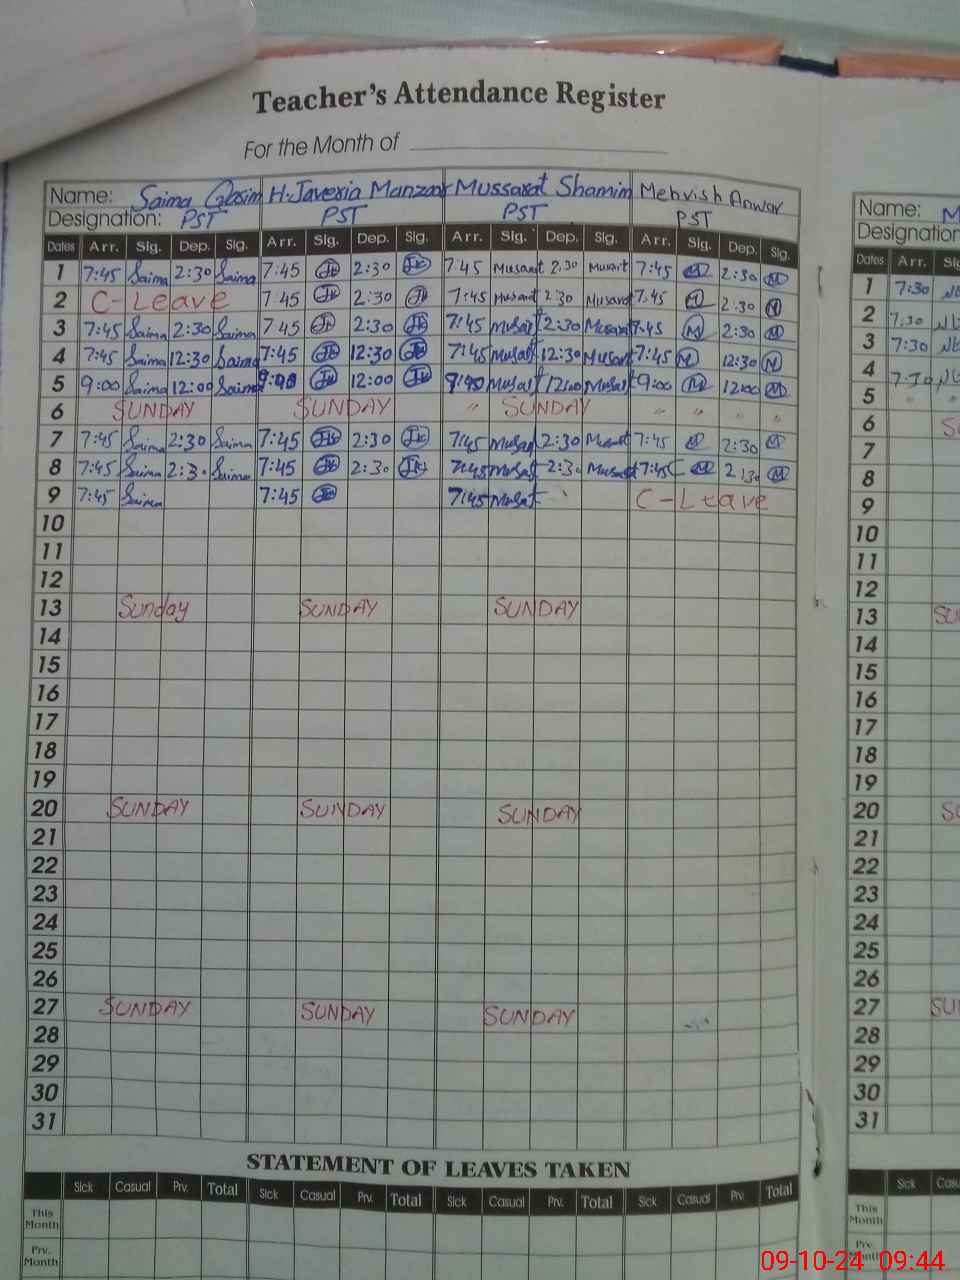 Teacher's Attendance Register
For the Month of
Name: Saima Qasim H. Javeria Manzoor Mussarat Shamim Mehvish Anwar Name:
Designation: PST PST PST PST Designation
Dates Arr. Sig. Dep. Sig. Arr. Sig. Dep. Sig. Arr. Sig. Dep. Sig. Arr. Sig. Dep. Sig. Dates Arr.
1 7:45 Saima 2:30 Saima 7:45 2:30 7:45 Musarat 2:30 7:45 M 2:30 M 1 7:30
2 C-Leave 7:45 2:30 7:45 Musarat 2:30 Musarat 7:45 M 2:30 M 2 7:30
3 7:45 Saima 2:30 Saima 7:45 2:30 7:45 Musarat 2:30 Musarat 7:45 M 2:30 M 3 7:30
4 7:45 Saima 12:30 Saima 7:45 12:30 7:45 Musarat 12:30 Musarat 7:45 M 12:30 M 4 7:30
5 9:00 Saima 12:00 Saima 12:00 12:00 9:00 M 12:00 M 5
6 SUNDAY SUNDAY " SUNDAY " " " " 6
7 7:45 Saima 2:30 Saima 7:45 2:30 7:45 Musarat 2:30 7:45 M 2:30 M 7
8 7:45 Saima 2:30 Saima 7:45 2:30 7:45 Musarat 2:30 Musarat 7:45 M 2:30 M 8
9 7:45 Saima 7:45 7:45 Musarat C-Leave 9
10 10
11 11
12 12
13 Sunday SUNDAY SUNDAY 13
14 14
15 15
16 16
17 17
18 18
19 19
20 SUNDAY SUNDAY SUNDAY 20
21 21
22 22
23 23
24 24
25 25
26 26
27 SUNDAY SUNDAY SUNDAY 27
28 28
29 29
30 30
31 31
STATEMENT OF LEAVES TAKEN
Sick Casual Prv. Total Sick Casual Prv. Total Sick Casual Prv. Total Sick Casual Prv. Total Sick
This Month This Month
Prv. Month Prv. Month
09-10-24 09:44